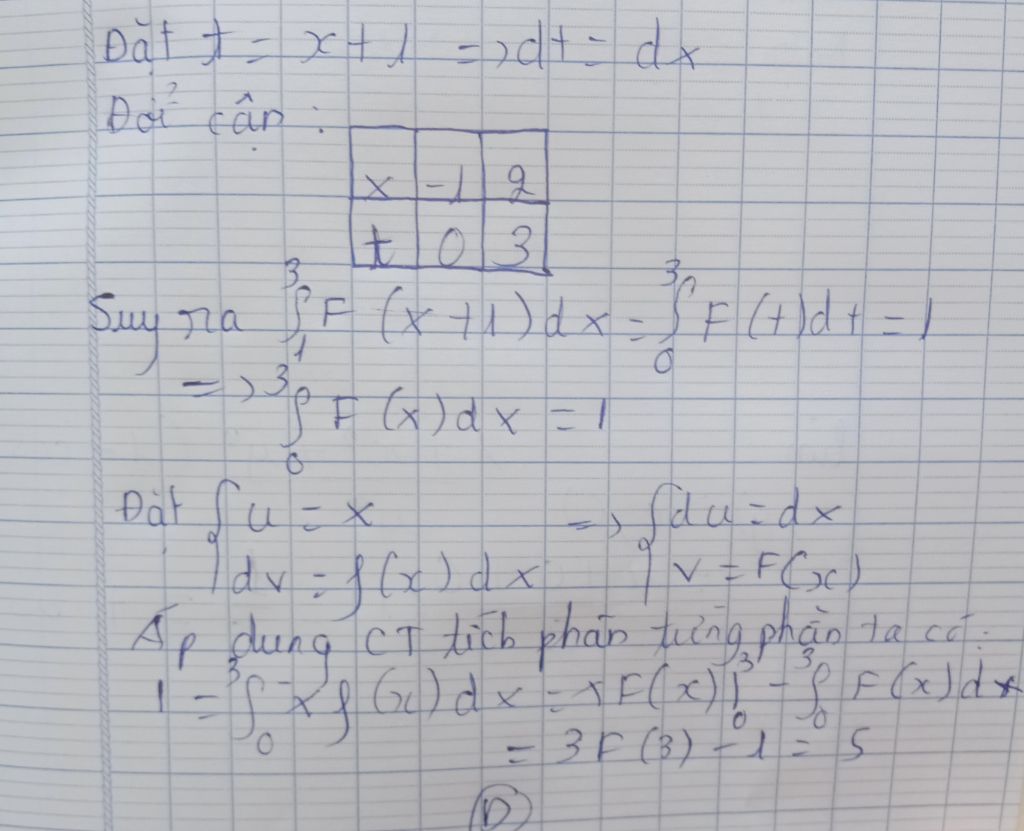 Đặt t = x + 1 => dt = dx
Đổi cận :
x -1 2
t 0 3
Suy ra ∫₁³ F (x + 1) dx = ∫₀³ F (t) dt = 1
=> ∫₀³ F (x) dx = 1
Đặt { u = x => { du = dx
dv = f(x) dx v = F(x)
Áp dụng CT tích phân từng phần ta có:
I = ∫₀³ x f(x) dx = x F(x) |₀³ - ∫₀³ F(x) dx
= 3F(3) - 1 = 5
D